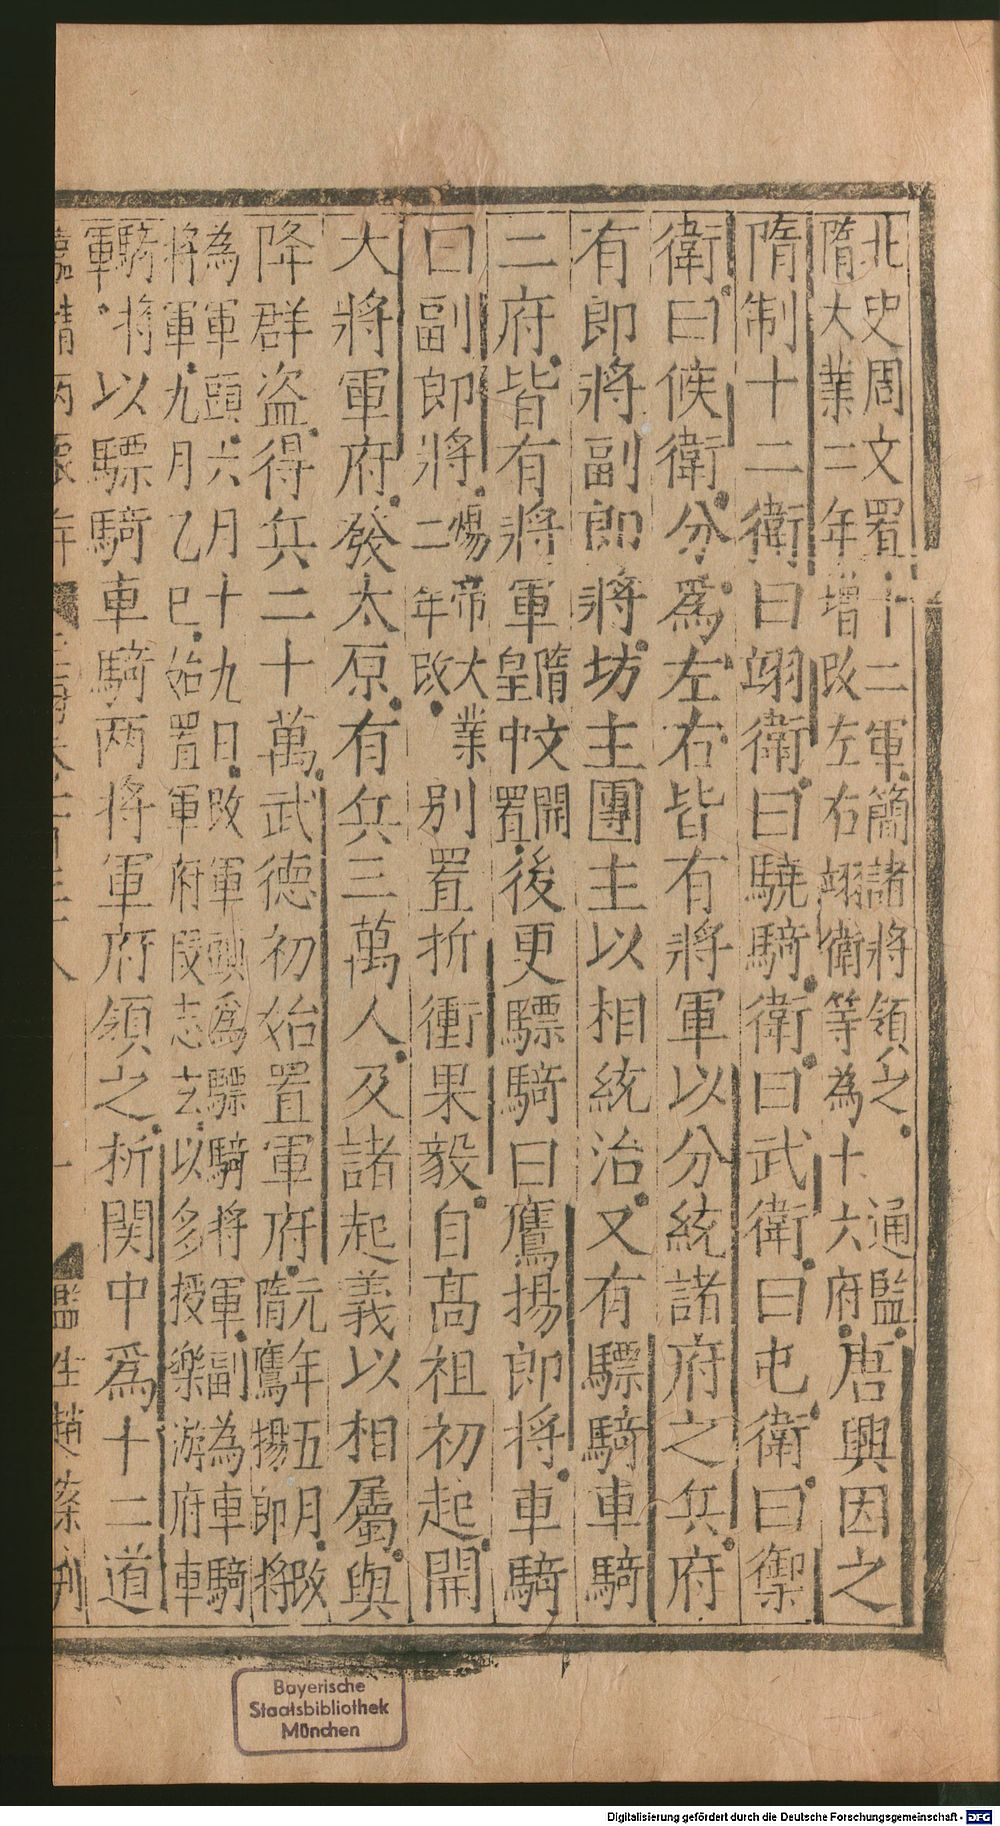 北史周文置十二軍簡諸將領之 通監
隋大業二年增改左右翊衛等為十六府唐興因之
隋制十二衛曰翊衛曰驍騎衛曰武衛曰屯衛曰禦
衛曰候衛分爲左右皆有將軍以分統諸府之兵府
有郎將副郎將坊主團主以相統治又有驃騎車騎
二府皆有將軍隋文開皇中置後更驃騎曰鷹揚郎將車騎
曰副郎將煬帝大業二年改別置折衝果毅自高祖初起開
大將軍府發太原有兵三萬人及諸起義以相屬與
降群盗得兵二十萬武德初始置軍府元年五月改隋鷹揚郎將
為軍頭六月十九日改軍頭爲驃騎将軍副為車騎
将軍九月乙巳始置軍府段志玄以多授樂游府車
騎将軍以驃騎車騎两将軍府領之析関中爲十二道
臨清
監生趙
Bayerische
Staatsbibliothek
München
Digitalisierung gefördert durch die Deutsche Forschungsgemeinschaft - DFG